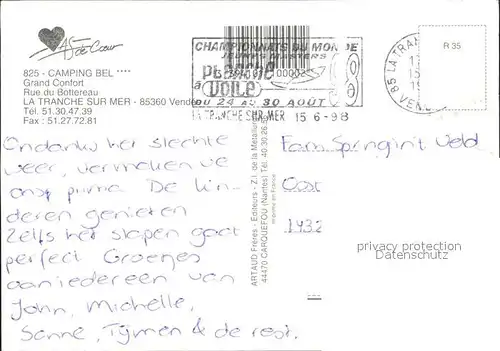 As de Cœur
825 - CAMPING BEL ****
Grand Confort
Rue du Bottereau
LA TRANCHE SUR MER - 85360 Vendée
Tél. 51.30.47.39
Fax : 51.27.72.81
CHAMPIONNATS DU MONDE
JEUNES MASTERS
PLANCHE
à VOILE
DU 24 au 30 AOÛT
LA TRANCHE SUR MER 15 6-98
85 LA TRAN
VEN
R 35
Ondanks het slechte
weer, vermaken we
ons prima. De kin-
deren genieten
Zelfs het slapen gaat
perfect Groetjes
aan iedereen van
John, Michelle,
Sanne, Tijmen & de rest.
ARTAUD Frères - Editeurs - Z.I. de la Métallerie
44470 CARQUEFOU (Nantes) Tél. 40.30.26.5
Imprimé en France
Fam. Springint Veld
Oost
1432
privacy protection
Datenschutz